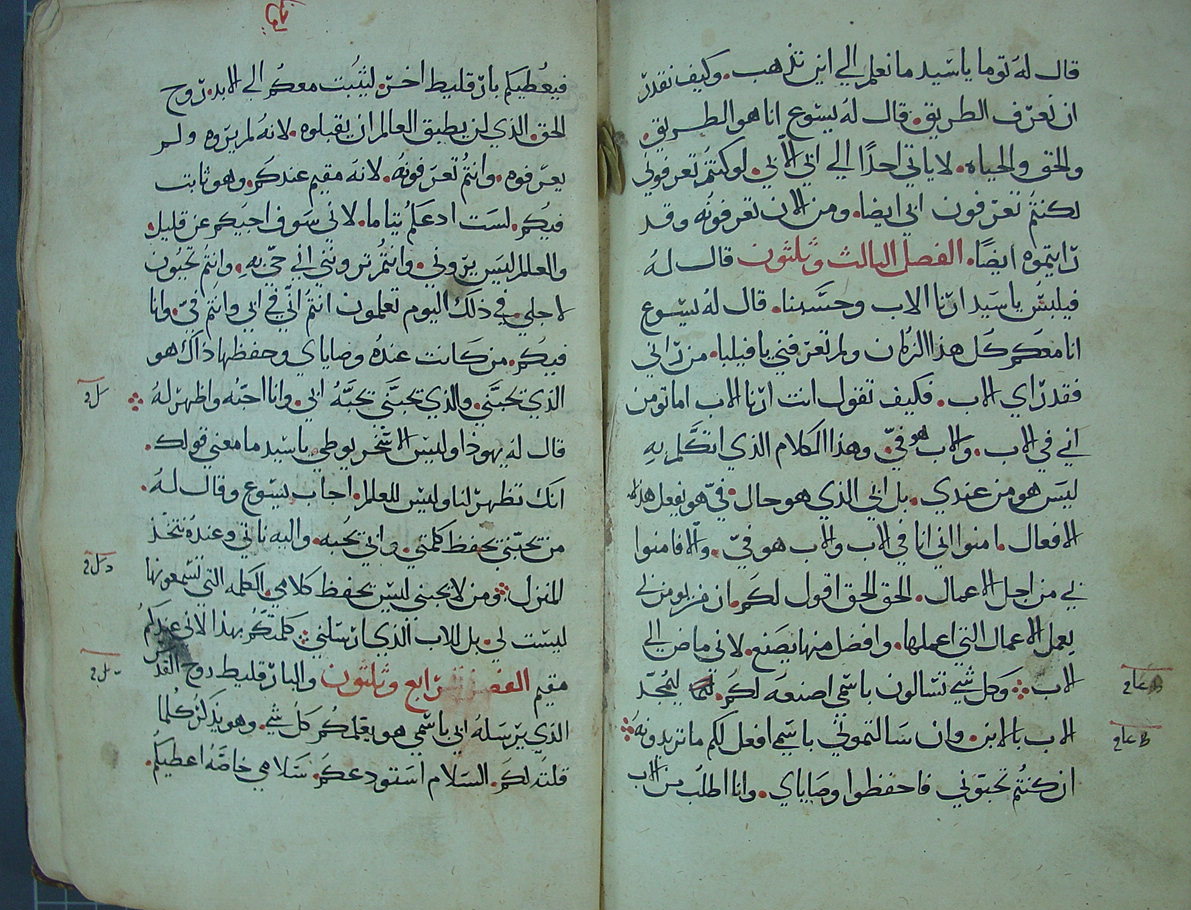 قال له توما ياسيد ما نعلم الي اين تذهب. وكيف نقدر
ان نعرف الطريق. قال له يسوع انا هو الطريق.
والحق والحياه. لاياتي احدًا الي ابي الا بي. لوكنتم تعرفوني
لكنتم تعرفون ابي ايضا. ومن الان تعرفونه وقد
رايتموه ايضًا. الفصل الثالث وثلثون قال له
فيلبس ياسيد ارنا الاب وحسبنا. قال له يسوع
انا معكم كل هذا الزمان ولم تعرفني يا فيلبا. من راني
فقد راي الاب. فكيف تقول انت ارنا الاب اما تومن
اني في الاب. والاب هو فيّ. وهذا الكلام الذي اتكلم به
ليس هو من عندي. بل ابي الذي هو حال فيّ هو يفعل هذه
الافعال. امنوا اني انا في الاب والاب هو فيّ. والا فامنوا
بي من اجل الاعمال. الحق الحق اقول لكم ان من يومن بي
يعمل الاعمال التي اعملها. وافضل منها يصنع. لاني ماض الي
الاب وكل شي تسالون باسمي اصنعه لكم. ليمجد
الاب بالابن. وان سالتموني باسمي افعل لكم ما تريدونه
ان كنتم تحبوني فاحفظوا وصاياي. وانا اطلب من الاب
فيعطيكم بارقليط اخر. ليثبت معكم الي الابد. روح
الحق. الذي لن يطيق العالم ان يقبلوه. لانه لم يروه ولم
يعرفوه. وانتم تعرفونه. لانه مقيم عندكم. وهو ثابت
فيكم. لست ادعكم يتاما. لاني سوف اجيكم عن قليل.
والعالم ليس يروني. وانتم تروني اني حي به. وانتم تحيون
لاجلي. في ذلك اليوم تعلمون انتم اني في ابي وانتم فيّ. وانا
فيكم. من كانت عنده وصاياي وحفظها ذاك هو
الذي يحبني. والذي يحبني يحبه ابي. وانا احبه واظهر له
قال له يهوذا وليس الاسخريوطي ياسيد ما معني قولك.
انك تظهر لنا وليس للعالم. اجاب يسوع وقال له.
من يحبني يحفظ كلمتي. وابي يحبه. واليه ناتي وعنده نتخذ
المنزل. ومن لا يحبني ليس يحفظ كلامي. الكلمه التي تسمعونها
ليست لي. بل للاب الذي ارسلني. كلمتكم بهذا لاني عندكم
مقيم الفصل الرابع وثلثون والبارقليط روح القدس
الذي يرسله ابي باسمي هو يعلمكم كل شي. وهو يذكركم كلما
قلته لكم. السلام استودعكم. سلامي خاصّه اعطيكم.